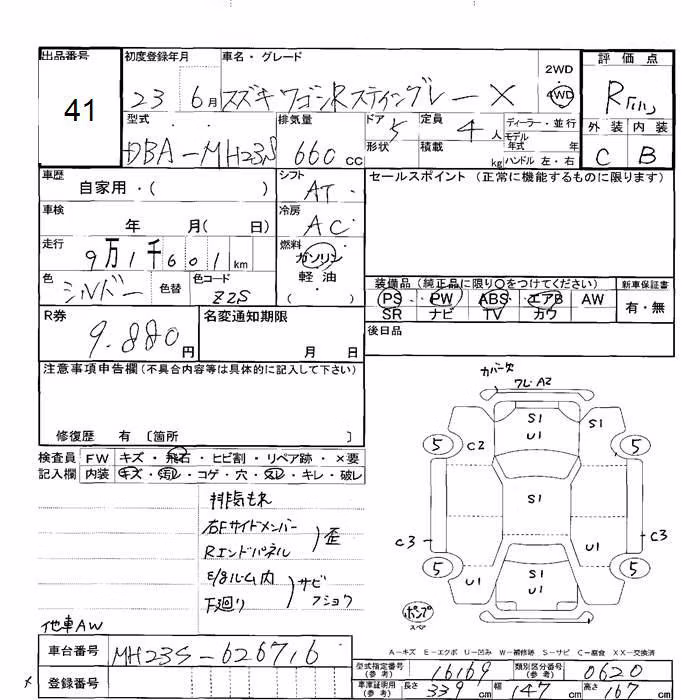 出品番号 初度登録年月 車名・グレード 評価点
41
23 6月 スズキ ワゴンR スティングレー X
2WD
4WD
R
型式 排気量 ドア 5 定員 4人 ディーラー・並行
モデル
年式 年
形状 積載 kg ハンドル 左・右
DBA-MH23S 660 CC
外装 内装
C B
車歴 自家用・( )
シフト AT
セールスポイント (正常に機能するものに限ります)
車検 年 月( 日)
冷房 AC
走行 9万1千601 km
燃料 ガソリン
軽油
( )
色 シルバー 色替 色コード Z2S
装備品 (純正品に限り○をつけてください) 新車保証書
PS・PW・ABS・エアB AW
SR ナビ TV カワ
有・無
R券 9.880円
名変通知期限
月 日
後日品
注意事項申告欄(不具合内容等は具体的に記入して下さい)
修復歴 有 〔箇所 〕
検査員 FW キズ・飛石・ヒビ割・リペア跡・×要
記入欄 内装 キズ・汚レ・コゲ・穴・スレ・キレ・破レ
排気もれ
右Fサイドメンバー
Rエンドパネル
歪
E/gルーム内
下廻り
サビ
フショク
他車AW
カバー欠
ワレ A2
S1
U1
S1
5 C2 5
S1
C3 C3
U1
5 5
S1
U1
U1
ポンプ
スペア
A-キズ E-エクボ U-凹み W-補修跡 S-サビ C-腐食 XX-交換済
車台番号 MH23S-626716
型式指定番号
(参考)
16169
類別区分番号
(参考)
0620
登録番号
車庫証明用
(参考)
長さ 339 cm 幅 147 cm 高さ 167 cm